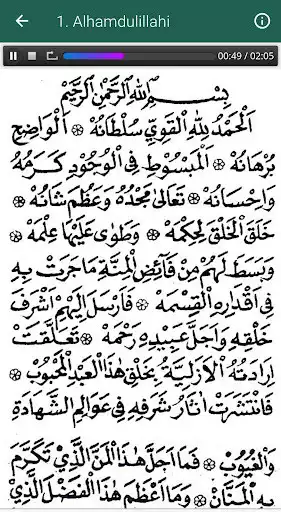 1. Alhamdulillahi
00:49 / 02:05
بِسْمِ اللّٰهِ الرَّحْمٰنِ الرَّحِيْمِ
اَلْحَمْدُ لِلّٰهِ الْقَوِيِّ سُلْطَانُهْ ۞ اَلْوَاضِحِ
بُرْهَانُهْ ۞ اَلْمَبْسُوْطِ فِي الْوُجُوْدِ كَرَمُهُ
وَاِحْسَانُهْ ۞ تَعَالٰى مَجْدُهُ وَعَظُمَ شَانُهْ ۞
خَلَقَ الْخَلْقَ لِحِكْمَهْ ۞ وَطَوٰى عَلَيْهَا عِلْمَهْ ۞
وَبَسَطَ لَهُمْ مِنْ فَآئِضِ الْمِنَّةِ مَاجَرَتْ بِهِ
فِى اَقْدَارِهِ الْقِسْمَهْ ۞ فَاَرْسَلَ اِلَيْهِمْ اَشْرَفَ
خَلْقِهِ وَاَجَلَّ عَبِيْدِهِ رَحْمَهْ ۞ تَعَلَّقَتْ
اِرَادَتُهُ الْاَزَلِيَّةُ بِخَلْقِ هٰذَا الْعَبْدِ الْمَحْبُوْبِ
فَانْتَشَرَتْ اٰثَارُ شَرَفِهِ فِي عَوَالِمِ الشَّهَادَةِ
وَالْغُيُوْبِ ۞ فَمَا اَجَلَّ هٰذَا الْمَنَّ الَّذِيْ تَكَرَّمَ
بِهِ الْمَنَّانُ ۞ وَمَا اَعْظَمَ هٰذَا الْفَضْلَ الَّذِيْ